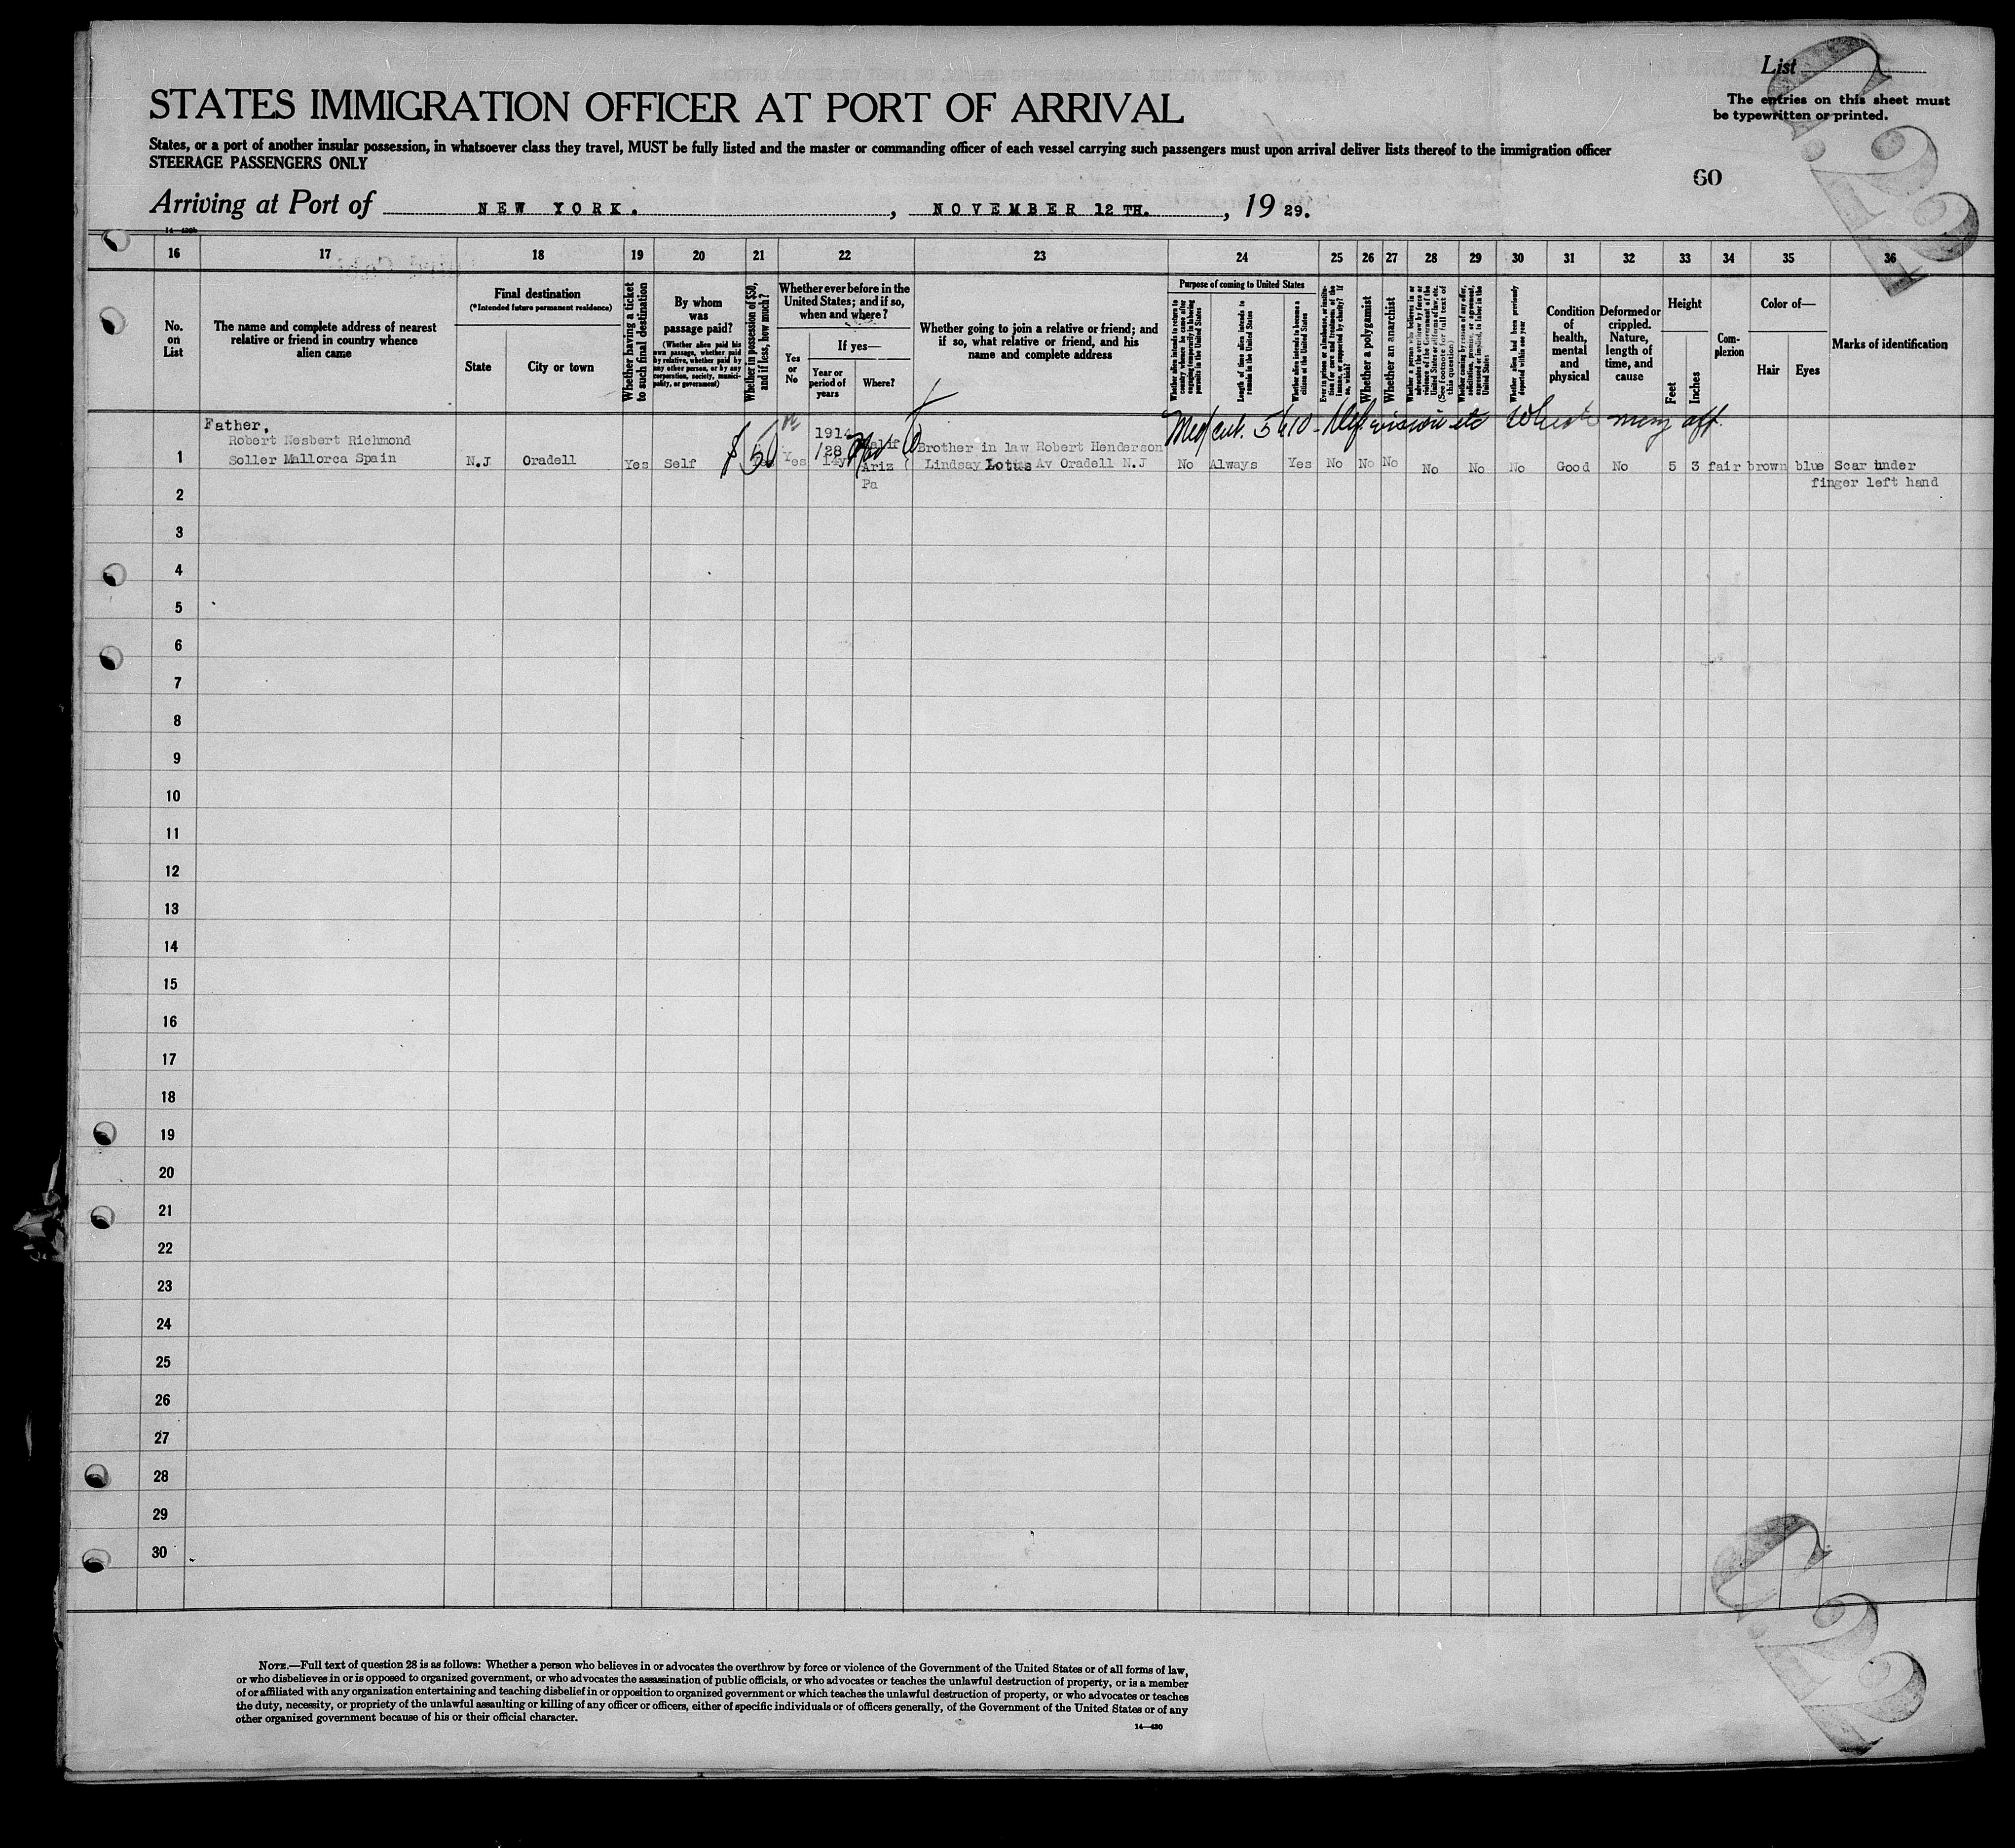 List
STATES IMMIGRATION OFFICER AT PORT OF ARRIVAL
The entries on this sheet must
be typewritten or printed.
States, or a port of another insular possession, in whatsoever class they travel, MUST be fully listed and the master or commanding officer of each vessel carrying such passengers must upon arrival deliver lists thereof to the immigration officer
STEERAGE PASSENGERS ONLY
60
Arriving at Port of NEW YORK. , NOVEMBER 12 TH. , 19 29.
16 17 18 19 20 21 22 23 24 25 26 27 28 29 30 31 32 33 34 35 36
No.
on
List
The name and complete address of nearest
relative or friend in country whence
alien came
Final destination
(*Intended future permanent residence)
State
City or town
Whether having a ticket
to such final destination
By whom
was
passage paid?
(Whether alien paid his
own passage, whether paid
by relative, whether paid by
any other person, or by any
corporation, society, munici-
pality, or government)
Whether in possession of $50,
and if less, how much?
Whether ever before in the
United States; and if so,
when and where?
Yes
or
No
If yes—
Year or
period of
years
Where?
Whether going to join a relative or friend; and
if so, what relative or friend, and his
name and complete address
Purpose of coming to United States
Whether alien intends to return to
country whence he came after
engaging temporarily in laboring
pursuits in the United States
Length of time alien intends to
remain in the United States
Whether alien intends to become a
citizen of the United States
Ever in prison or almshouse, or institu-
tion for care and treatment of the
insane, or supported by charity? If
so, which?
Whether a polygamist
Whether an anarchist
Whether a person who believes in or
advocates the overthrow by force or
violence of the Government of the
United States or all forms of law, etc.
(See footnote for full text of
this question)
Whether coming by reason of any offer,
solicitation, promise, or agreement,
expressed or implied, to labor in the
United States
Whether alien had been previously
deported within one year
Condition
of
health,
mental
and
physical
Deformed or
crippled.
Nature,
length of
time, and
cause
Height
Feet
Inches
Com-
plexion
Color of—
Hair
Eyes
Marks of identification
Father,
Robert Nesbert Richmond
1 Soller Mallorca Spain N.J Oradell Yes Self $50 Yes
1914
/28
14y
Calif
Ariz
Pa
Brother in law Robert Henderson
Lindsay Lotus Av Oradell N.J No Always Yes No No No No No No Good No 5 3 fair brown blue Scar under
finger left hand
Med cert.
2
3
4
5
6
7
8
9
10
11
12
13
14
15
16
17
18
19
20
21
22
23
24
25
26
27
28
29
30
NOTE.—Full text of question 28 is as follows: Whether a person who believes in or advocates the overthrow by force or violence of the Government of the United States or of all forms of law,
or who disbelieves in or is opposed to organized government, or who advocates the assassination of public officials, or who advocates or teaches the unlawful destruction of property, or is a member
of or affiliated with any organization entertaining and teaching disbelief in or opposition to organized government or which teaches the unlawful destruction of property, or who advocates or teaches
the duty, necessity, or propriety of the unlawful assaulting or killing of any officer or officers, either of specific individuals or of officers generally, of the Government of the United States or of any
other organized government because of his or their official character.
14—430